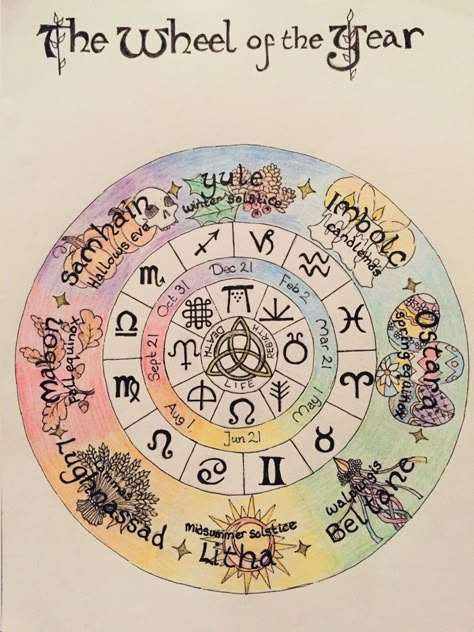 The Wheel of the Year
yule
winter solstice
Imbolc
candlemas
Ostara
Spring equinox
walpurgis
Beltane
midsummer solstice
Litha
Lammas
Lughnassad
Mabon
Fall equinox
Samhain
Hallows eve
Dec 21
Feb 2
Mar 21
May 1
Jun 21
Aug 1
Sept 21
Oct 31
REBIRTH
LIFE
DEATH